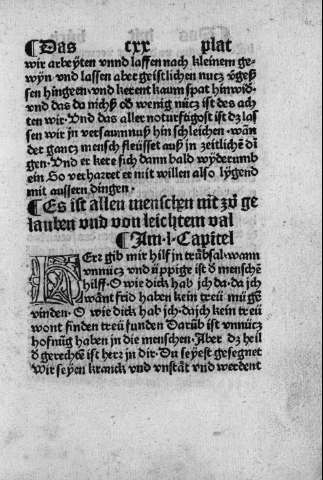 ¶Das cxx plat
wir arbeÿten vnnd lassen nach kleinem ge-
wÿn · vnd lassen aber geistlichen nucz vͦgeß
sen hingeen · vnd kerent kaum spat hinwid·
vnd das da nichß oð wenig nücz ist des ach
ten wir · Vnd das aller noturfftigost ist dz las
sen wir jn versawmnuß hin schleichen · wañ
der gancz mensch fleüsset auß in zeitliche di
gen · Vnd er kere sich dann bald wyderumb
ein So verharret er mit willen also lÿgend
mit aussern dingen ·
¶Es ist allen menschen nit zů ge
lauben vnd von leichtem val
¶Im · l · Capitel
HErr gib mir hilf in trübsal · wann
vnnücz vnd üppige ist ð menschē
hilff · O wie dick hab jch da · da jch
want frid haben kein treü mügē
vinden · O wie dick hab jch · da jch kein treü
wont finden treü funden Darüb ist vnnücz
hofnūg haben in die menschen · Aber dz heil
ð gerechtē ist herr in dir · Du seyest gesegnet
Wir seyen kranck vnd vnstāt vnd werdent